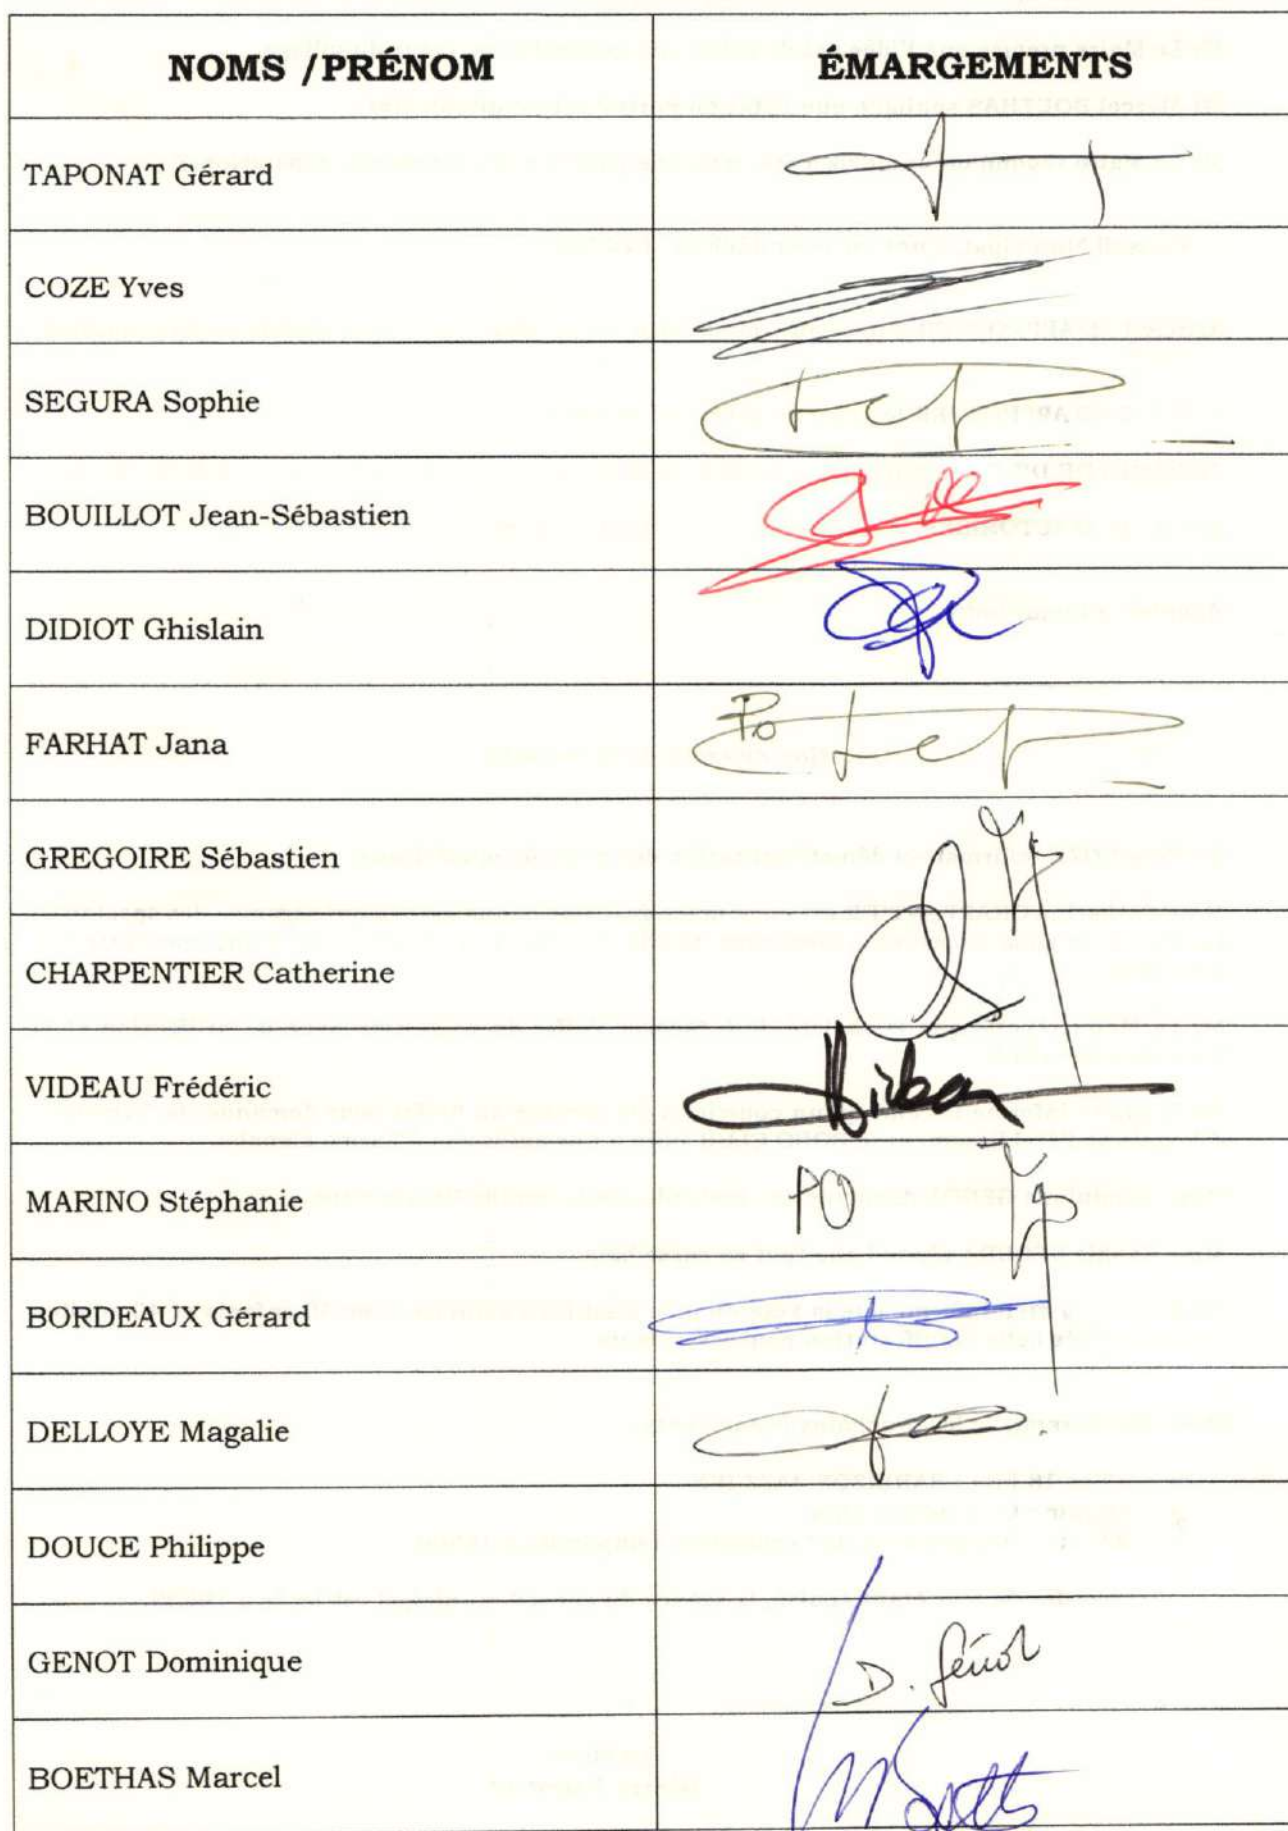 NOMS /PRÉNOM ÉMARGEMENTS
TAPONAT Gérard
COZE Yves
SEGURA Sophie
BOUILLOT Jean-Sébastien
DIDIOT Ghislain
FARHAT Jana Po
GREGOIRE Sébastien
CHARPENTIER Catherine
VIDEAU Frédéric
MARINO Stéphanie PO
BORDEAUX Gérard
DELLOYE Magalie
DOUCE Philippe
GENOT Dominique D. Génot
BOETHAS Marcel